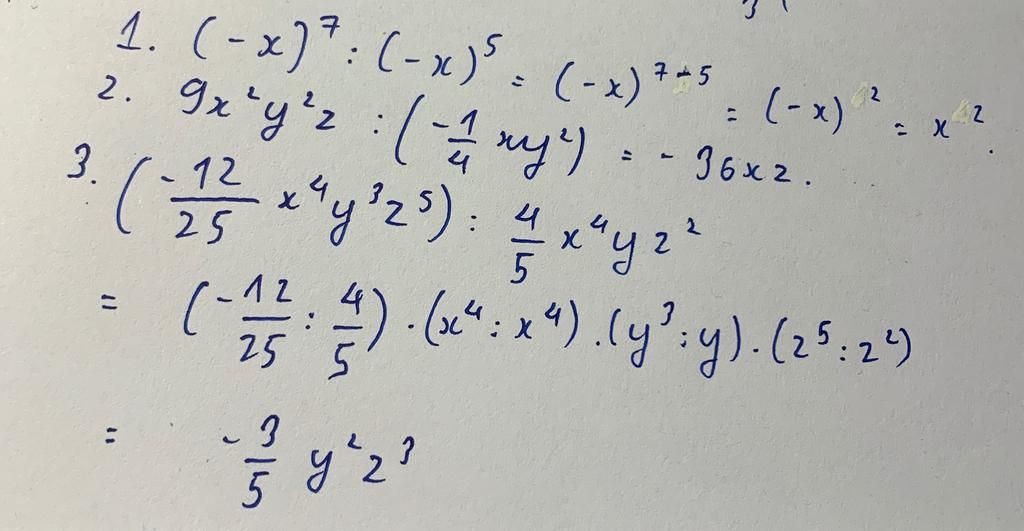 1. (-x)⁷ : (-x)⁵ = (-x)⁷⁻⁵ = (-x)² = x².
2. 9x²y²z : (-1/4 xy²) = - 36xz.
3. (-12/25 x⁴y³z⁵) : 4/5 x⁴yz²
= (-12/25 : 4/5) . (x⁴ : x⁴) . (y³ : y) . (z⁵ : z²)
= -3/5 y²z³